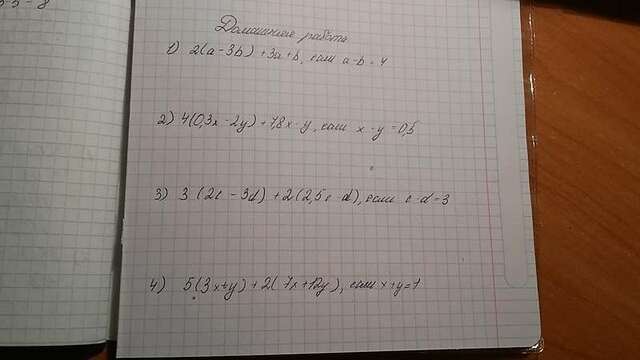 Домашняя работа
1) 2(a - 3b) + 3a + b, если a - b = 4
2) 4(0,3x - 2y) + 7,8x - y, если x - y = 0,5
3) 3 (2c - 3d) + 2 (2,5c - d), если c - d = 3
4) 5(3x + y) + 2(7x + 12y), если x + y = 7